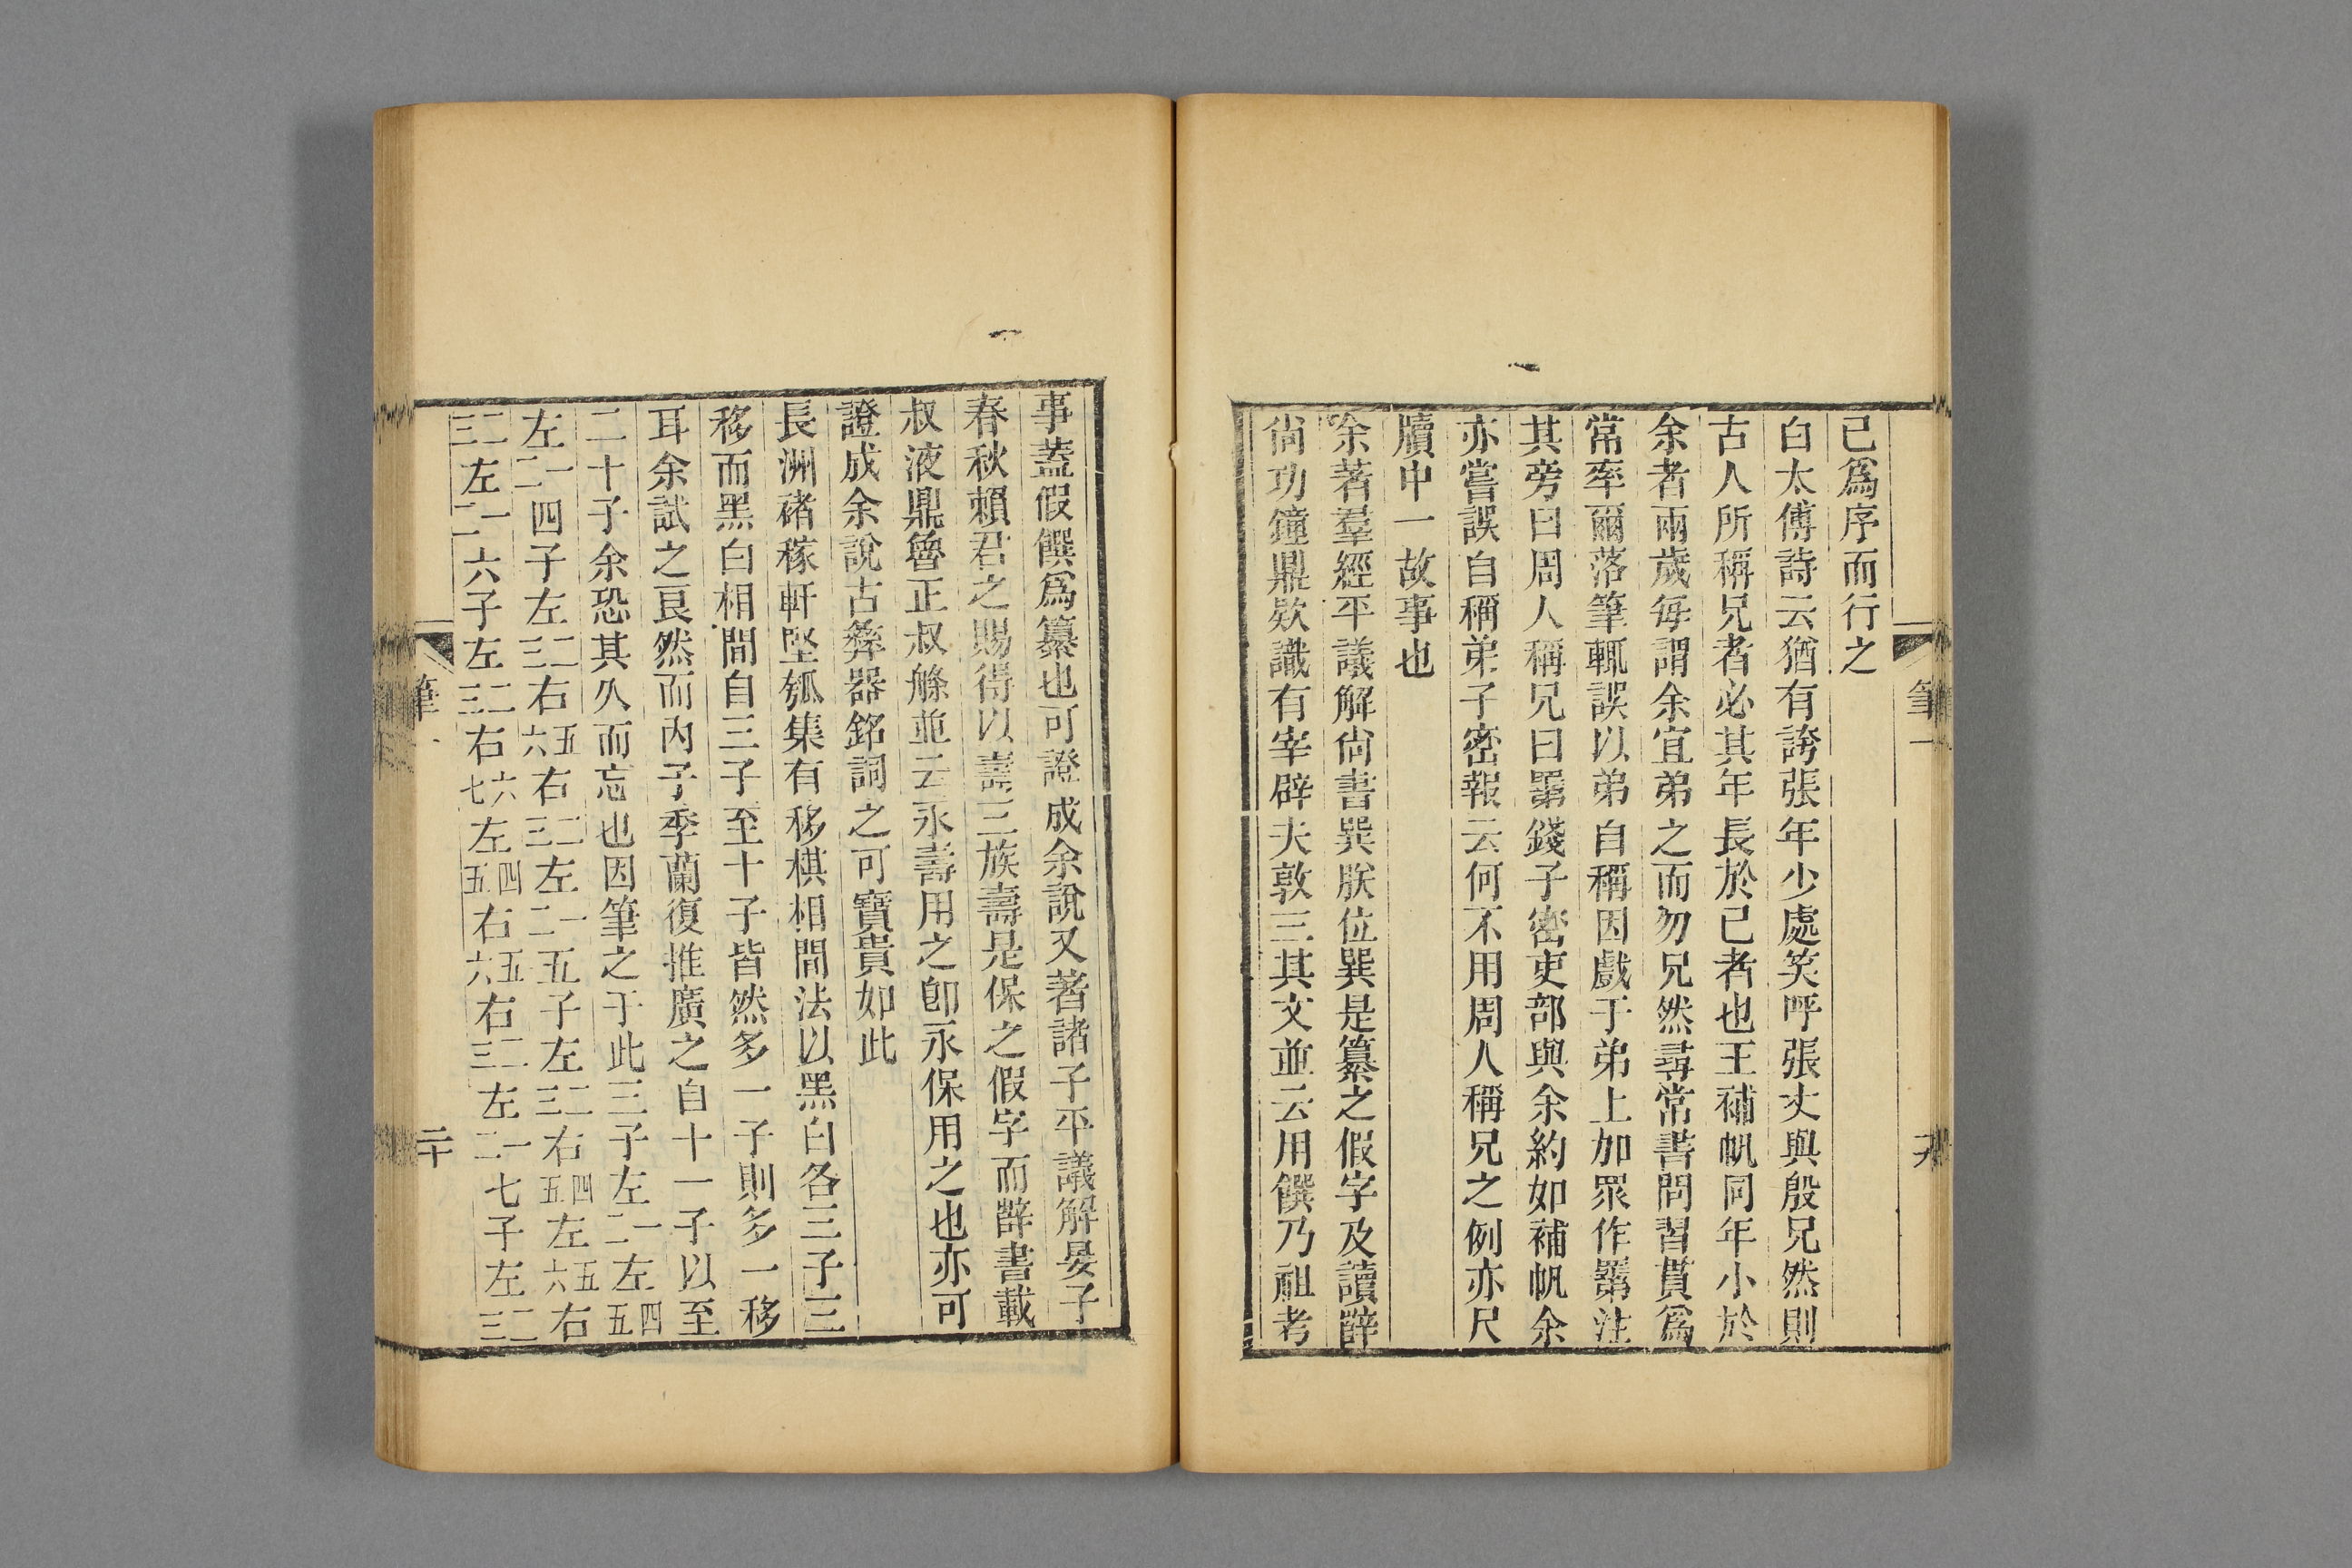 筆一
己爲序而行之
白太傅詩云猶有誇張年少處笑呼張丈與殷兄然則
古人所稱兄者必其年長於己者也王補帆同年小於
余者兩歲每謂余宜弟之而勿兄然尋常書問習貫爲
常率爾落筆輒誤以弟自稱因戲于弟上加眾作𦌾注
其旁曰周人稱兄曰𦌾錢子密吏部與余約如補帆余
亦嘗誤自稱弟子密報云何不用周人稱兄之例亦尺
牘中一故事也
余著羣經平議解尙書巽朕位巽是纂之假字及讀薛
尙功鐘鼎欵識有宰辟夫敦三其文並云用饌乃祖考
事蓋假饌爲纂也可證成余說又著諸子平議解晏子
春秋賴君之賜得以壽三族壽是保之假字而薛書載
叔液鼎魯正叔𦨶並云永壽用之卽永保用之也亦可
證成余說古彜器銘詞之可寶貴如此
長洲褚稼軒堅瓠集有移棋相間法以黑白各三子三
移而黑白相間自三子至十子皆然多一子則多一移
耳余試之良然而內子季蘭復推廣之自十一子以至
二十子余恐其久而忘也因筆之于此三子左一二左四五
左一二四子左二三右五六右二三左一二五子左二三右四五左五六右
二三左一二六子左二三右六七左四五右五六右二三左一二七子左二三
筆一
二十